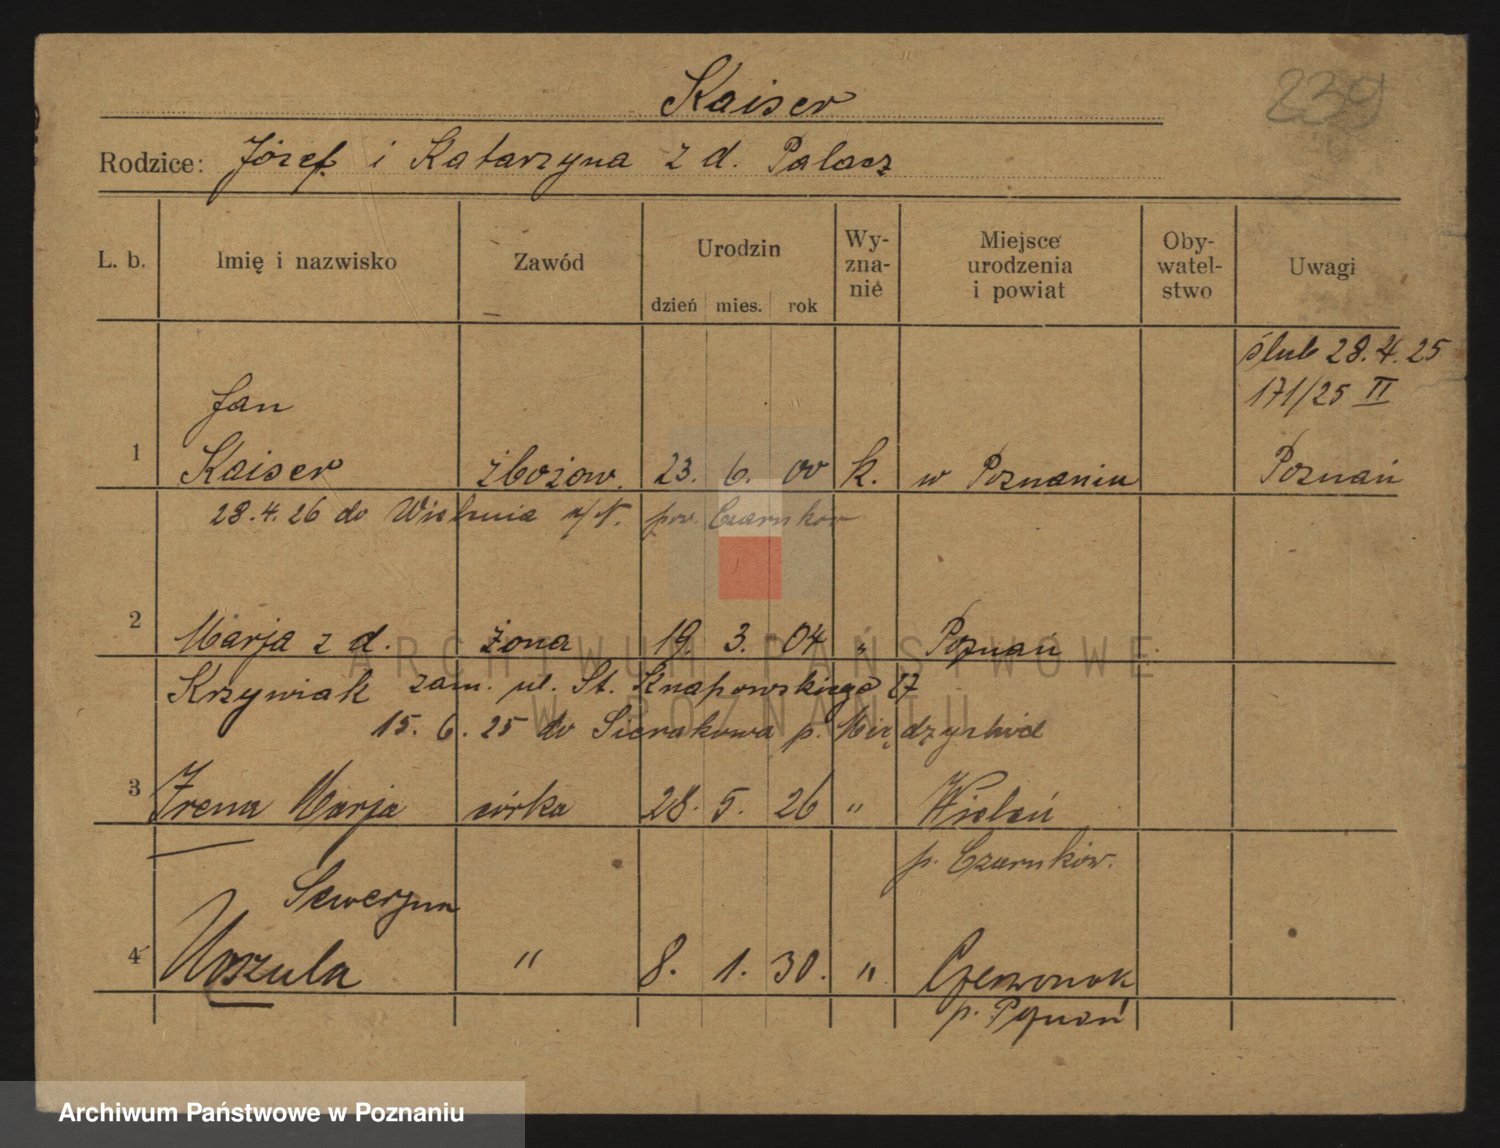 Kaiser
239
Rodzice: Józef i Katarzyna z d. Palacz
L. b. Imię i nazwisko Zawód Urodzin dzień mies. rok Wy-zna-nie Miejsce urodzenia i powiat Oby-watel-stwo Uwagi
ślub 28.4.25
171/25 II
Jan
1 Kaiser zbożow. 23. 6. 00 k. w Poznaniu Poznań
28.4.26 do Wielenia n/N. pow. Czarnków
2 Marja z d. żona 19. 3. 04 " Poznań
Krzywiak zam. ul. St. Knapowskiego 27
15.6.25 do Sierakowa p. Międzychód
3 Irena Marja córka 28. 5. 26 " Wieleń
p. Czarnków.
Seweryna
4 Urszula " 8. 1. 30. " Czerwonak
p. Poznań
ARCHIWUM PAŃSTWOWE
W POZNANIU
Archiwum Państwowe w Poznaniu